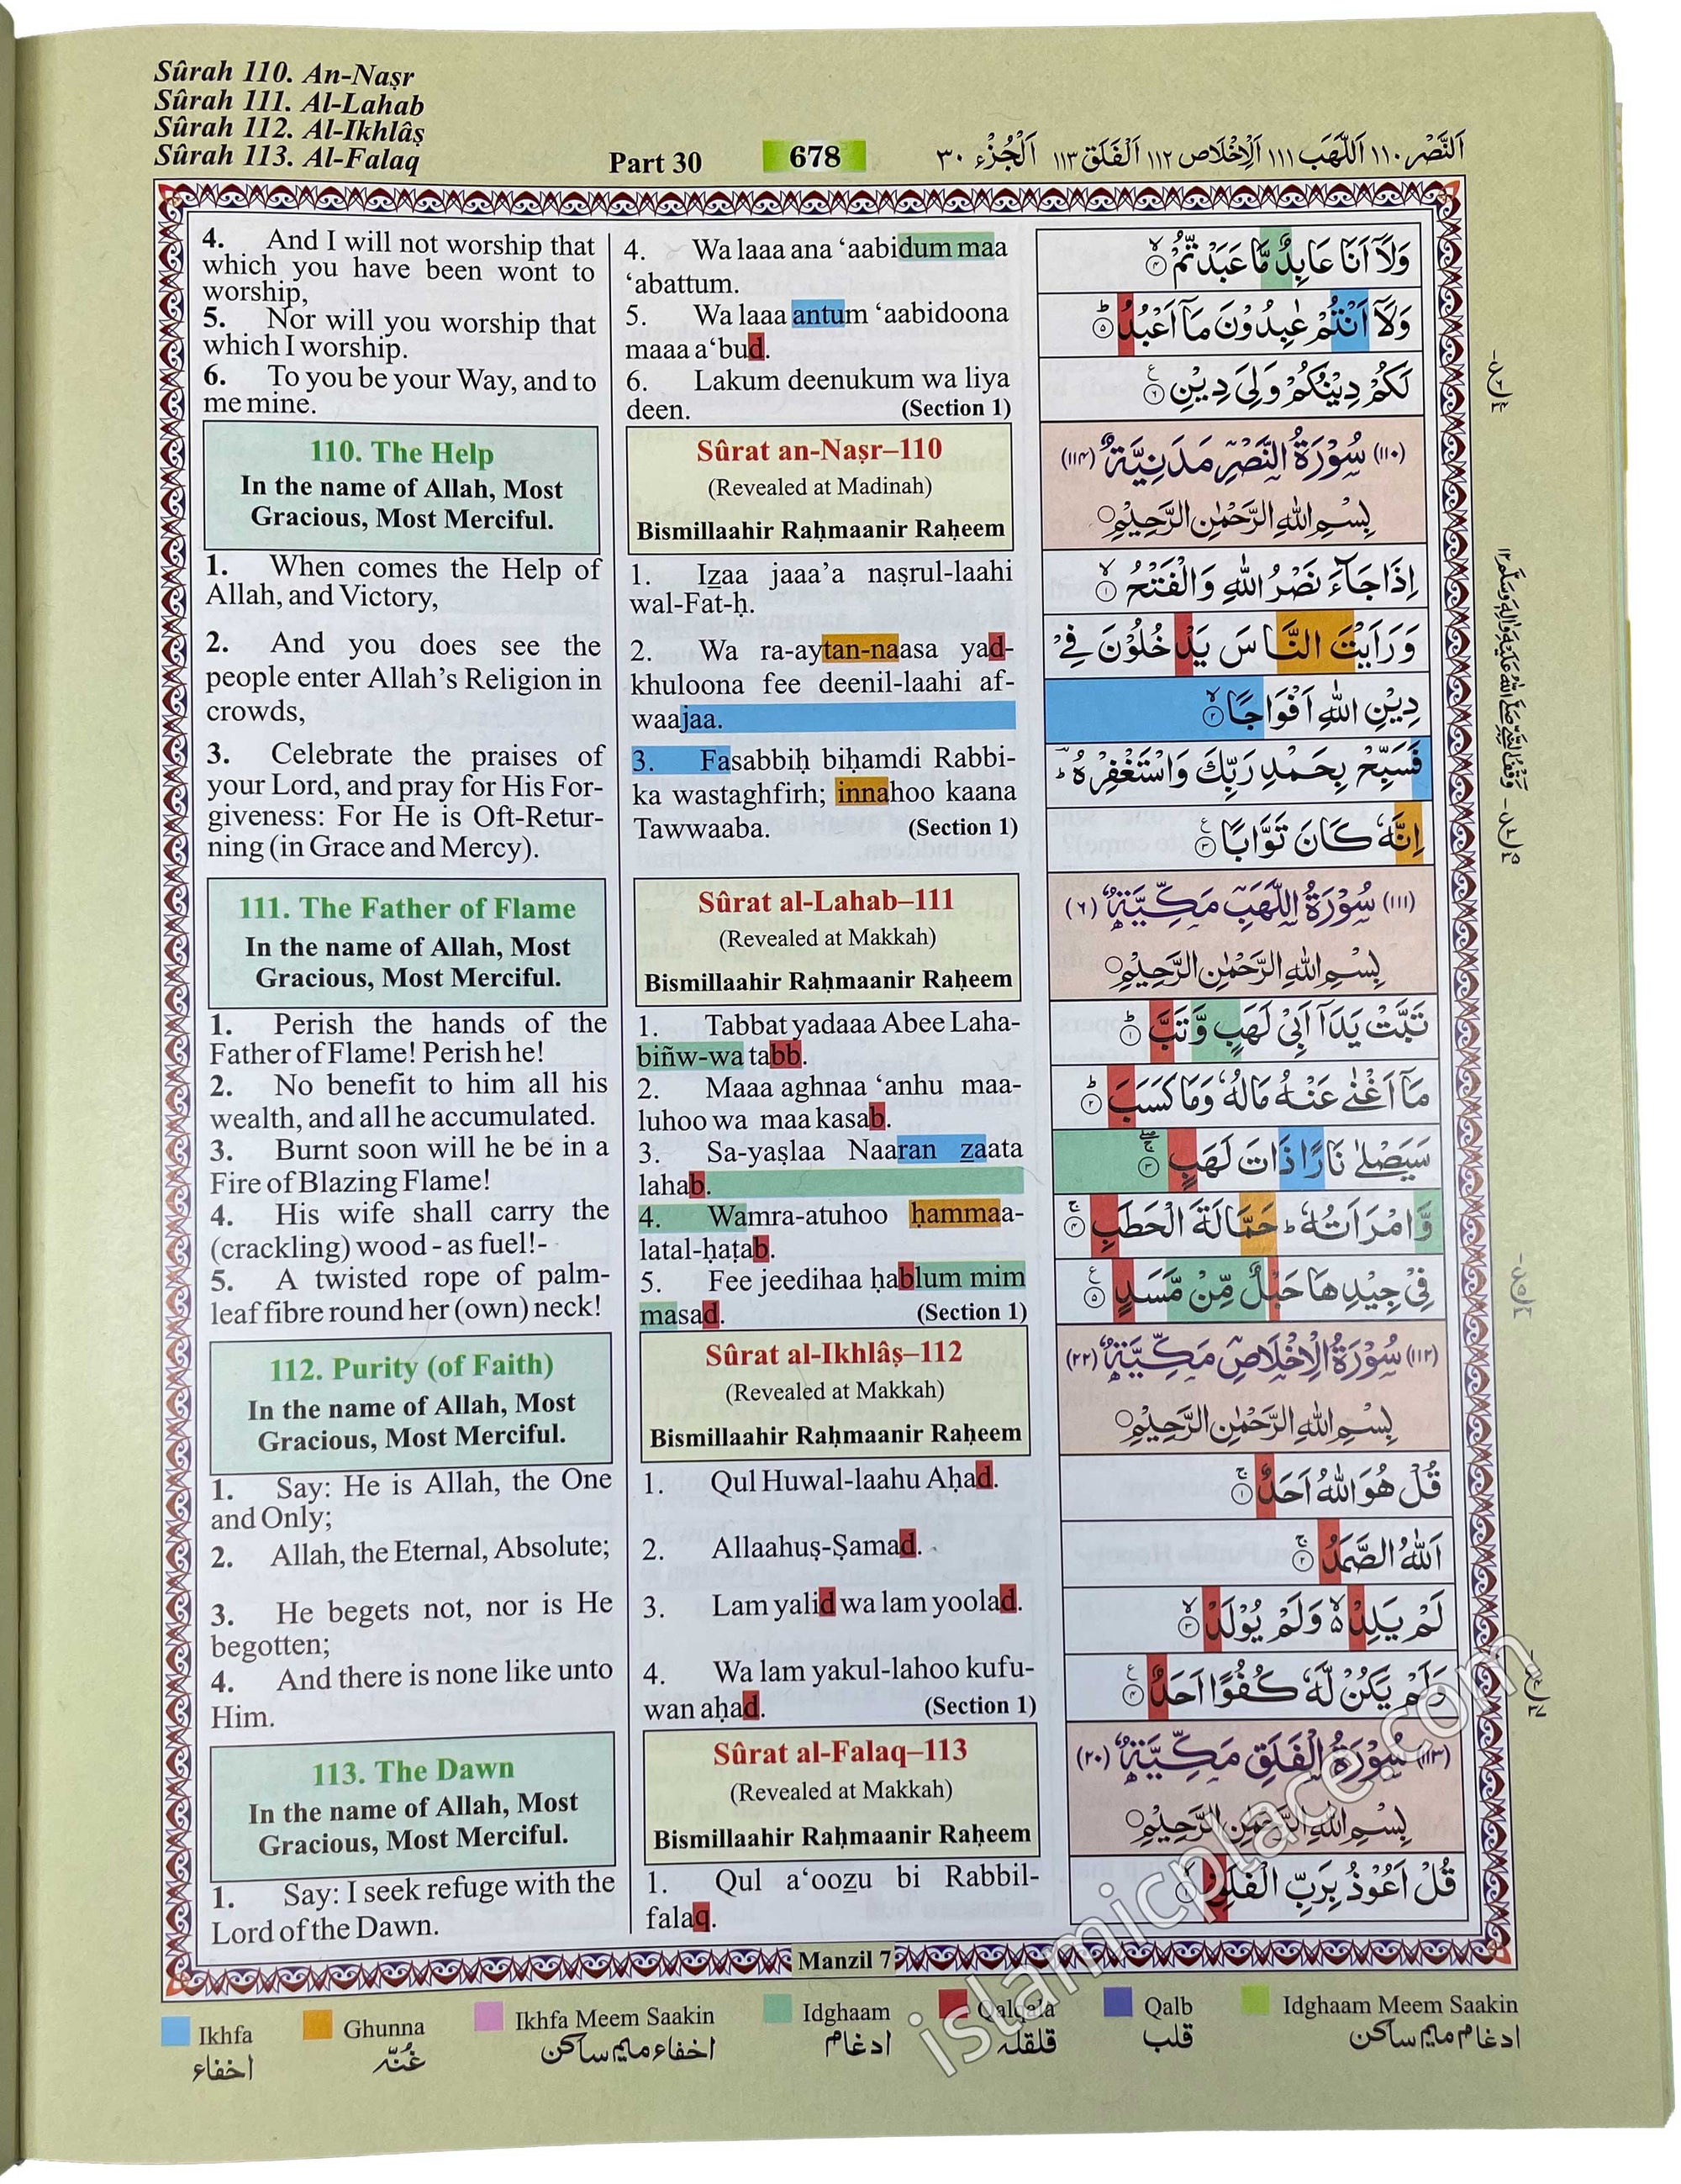 Sûrah 110. An-Naṣr
Sûrah 111. Al-Lahab
Sûrah 112. Al-Ikhlâṣ
Sûrah 113. Al-Falaq
Part 30
678
اَلنَّصْر ١١٠ اَللَّهَب ١١١ اَلْاِخْلَاص ١١٢ اَلْفَلَق ١١٣ اَلْجُزْء ٣٠
4. And I will not worship that
which you have been wont to
worship,
5. Nor will you worship that
which I worship.
6. To you be your Way, and to
me mine.
110. The Help
In the name of Allah, Most
Gracious, Most Merciful.
1. When comes the Help of
Allah, and Victory,
2. And you does see the
people enter Allah’s Religion in
crowds,
3. Celebrate the praises of
your Lord, and pray for His For-
giveness: For He is Oft-Retur-
ning (in Grace and Mercy).
111. The Father of Flame
In the name of Allah, Most
Gracious, Most Merciful.
1. Perish the hands of the
Father of Flame! Perish he!
2. No benefit to him all his
wealth, and all he accumulated.
3. Burnt soon will he be in a
Fire of Blazing Flame!
4. His wife shall carry the
(crackling) wood - as fuel!-
5. A twisted rope of palm-
leaf fibre round her (own) neck!
112. Purity (of Faith)
In the name of Allah, Most
Gracious, Most Merciful.
1. Say: He is Allah, the One
and Only;
2. Allah, the Eternal, Absolute;
3. He begets not, nor is He
begotten;
4. And there is none like unto
Him.
113. The Dawn
In the name of Allah, Most
Gracious, Most Merciful.
1. Say: I seek refuge with the
Lord of the Dawn.
4. Wa laaa ana ‘aabidum maa
‘abattum.
5. Wa laaa antum ‘aabidoona
maaa a‘bud.
6. Lakum deenukum wa liya
deen. (Section 1)
Sûrat an-Naṣr–110
(Revealed at Madinah)
Bismillaahir Raḥmaanir Raḥeem
1. Izaa jaaa’a naṣrul-laahi
wal-Fat-ḥ.
2. Wa ra-aytan-naasa yad-
khuloona fee deenil-laahi af-
waajaa.
3. Fasabbiḥ biḥamdi Rabbi-
ka wastaghfirh; innahoo kaana
Tawwaaba. (Section 1)
Sûrat al-Lahab–111
(Revealed at Makkah)
Bismillaahir Raḥmaanir Raḥeem
1. Tabbat yadaaa Abee Laha-
biñw-wa tabb.
2. Maaa aghnaa ‘anhu maa-
luhoo wa maa kasab.
3. Sa-yaṣlaa Naaran zaata
lahab.
4. Wamra-atuhoo ḥammaa-
latal-ḥaṭab.
5. Fee jeedihaa ḥablum mim
masad. (Section 1)
Sûrat al-Ikhlâṣ–112
(Revealed at Makkah)
Bismillaahir Raḥmaanir Raḥeem
1. Qul Huwal-laahu Aḥad.
2. Allaahuṣ-Ṣamad.
3. Lam yalid wa lam yoolad.
4. Wa lam yakul-lahoo kufu-
wan aḥad. (Section 1)
Sûrat al-Falaq–113
(Revealed at Makkah)
Bismillaahir Raḥmaanir Raḥeem
1. Qul a‘oozu bi Rabbil-
falaq.
وَلَاۤ اَنَا عَابِدٌ مَّا عَبَدْتُّمْ ۙ۴
وَلَاۤ اَنْتُمْ عٰبِدُوْنَ مَاۤ اَعْبُدُ ؕ۵
لَكُمْ دِيْنُكُمْ وَلِیَ دِيْنِ ۶
(١١٠) سُوْرَةُ النَّصْرِ مَدَنِيَّةٌ (١١٤)
بِسْمِ اللهِ الرَّحْمٰنِ الرَّحِيْمِ
اِذَا جَآءَ نَصْرُ اللهِ وَالْفَتْحُ ۙ۱
وَرَاَيْتَ النَّاسَ يَدْخُلُوْنَ فِیْ
دِيْنِ اللهِ اَفْوَاجًا ۙ۲
فَسَبِّحْ بِحَمْدِ رَبِّكَ وَاسْتَغْفِرْهُ ؕ
اِنَّهٗ كَانَ تَوَّابًا ۳
(١١١) سُوْرَةُ اللَّهَبِ مَكِّيَّةٌ (٦)
بِسْمِ اللهِ الرَّحْمٰنِ الرَّحِيْمِ
تَبَّتْ يَدَاۤ اَبِیْ لَهَبٍ وَّتَبَّ ؕ۱
مَاۤ اَغْنٰی عَنْهُ مَالُهٗ وَمَا كَسَبَ ؕ۲
سَيَصْلٰی نَارًا ذَاتَ لَهَبٍ ۳
وَّامْرَاَتُهٗ ؕ حَمَّالَةَ الْحَطَبِ ۚ۴
فِیْ جِيْدِهَا حَبْلٌ مِّنْ مَّسَدٍ ۵
(١١٢) سُوْرَةُ الْاِخْلَاصِ مَكِّيَّةٌ (٢٢)
بِسْمِ اللهِ الرَّحْمٰنِ الرَّحِيْمِ
قُلْ هُوَ اللهُ اَحَدٌ ۚ۱
اَللهُ الصَّمَدُ ۚ۲
لَمْ يَلِدْ ۙ۬ وَلَمْ يُوْلَدْ ۙ۳
وَلَمْ يَكُنْ لَّهٗ كُفُوًا اَحَدٌ ۴
(١١٣) سُوْرَةُ الْفَلَقِ مَكِّيَّةٌ (٢٠)
بِسْمِ اللهِ الرَّحْمٰنِ الرَّحِيْمِ
قُلْ اَعُوْذُ بِرَبِّ الْفَلَقِ ۙ۱
Manzil 7
Ikhfa Ghunna Ikhfa Meem Saakin Idghaam Qalqala Qalb Idghaam Meem Saakin
اخفاء غُنّہ اخفاء میم ساکن ادغام قلقلہ قلب ادغام میم ساکن
islamicplace.com